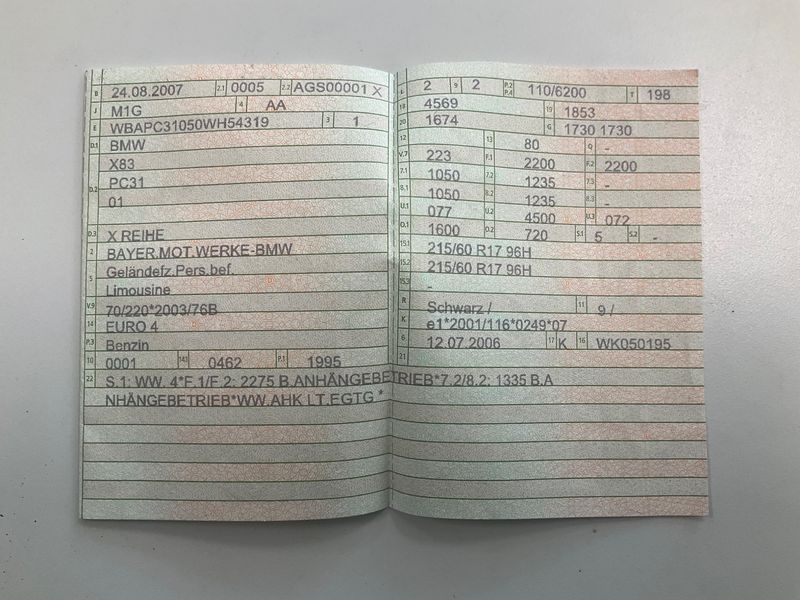 B 24.08.2007 2.1 0005 2.2 AGS00001 X
J M1G 4 AA
E WBAPC31050WH54319 3 1
D.1 BMW
X83
D.2 PC31
01
D.3 X REIHE
2 BAYER.MOT.WERKE-BMW
5 Geländefz.Pers.bef.
Limousine
V.9 70/220*2003/76B
14 EURO 4
P.3 Benzin
10 0001 14.1 0462 P.1 1995
22 S.1: WW. 4*F.1/F.2: 2275 B.ANHÄNGEBETRIEB*7.2/8.2: 1335 B.A
NHÄNGEBETRIEB*WW.AHK LT.EGTG.*
L 2 9 2 P.2 P.4 110/6200 T 198
18 4569 19 1853
20 1674 G 1730 1730
12 13 80 Q -
V.7 223 F.1 2200 F.2 2200
7.1 1050 7.2 1235 7.3 -
8.1 1050 8.2 1235 8.3 -
U.1 077 U.2 4500 U.3 072
O.1 1600 O.2 720 S.1 5 S.2 -
15.1 215/60 R17 96H
15.2 215/60 R17 96H
15.3 -
R Schwarz / 11 9 /
K e1*2001/116*0249*07
6 12.07.2006 17 K 16 WK050195
21